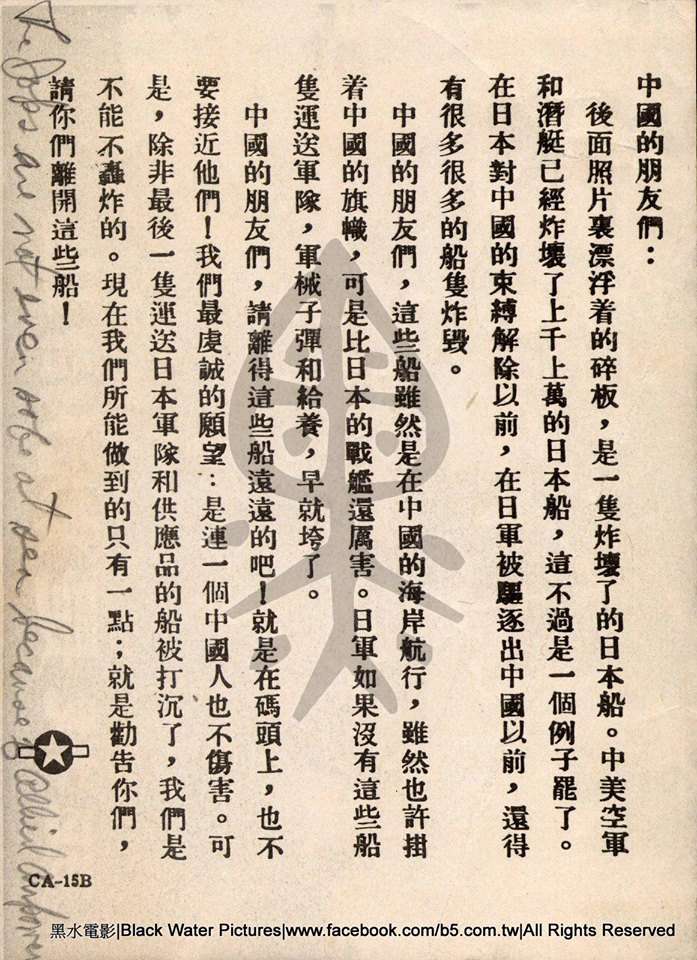 中國的朋友們：
後面照片裏漂浮着的碎板，是一隻炸壞了的日本船。中美空軍
和潛艇已經炸壞了上千上萬的日本船，這不過是一個例子罷了。
在日本對中國的束縛解除以前，在日軍被驅逐出中國以前，還得
有很多很多的船隻炸毀。
中國的朋友們，這些船雖然是在中國的海岸航行，雖然也許掛
着中國的旗幟，可是比日本的戰艦還厲害。日軍如果沒有這些船
隻運送軍隊，軍械子彈和給養，早就垮了。
中國的朋友們，請離得這些船遠遠的吧！就是在碼頭上，也不
要接近他們！我們最虔誠的願望：是連一個中國人也不傷害。可
是，除非最後一隻運送日本軍隊和供應品的船被打沉了，我們是
不能不轟炸的。現在我們所能做到的只有一點；就是勸告你們，
請你們離開這些船！
The Japs are not even safe at sea because of Allied
CA-15B
黑水電影|Black Water Pictures|www.facebook.com/b5.com.tw|All Rights Reserved